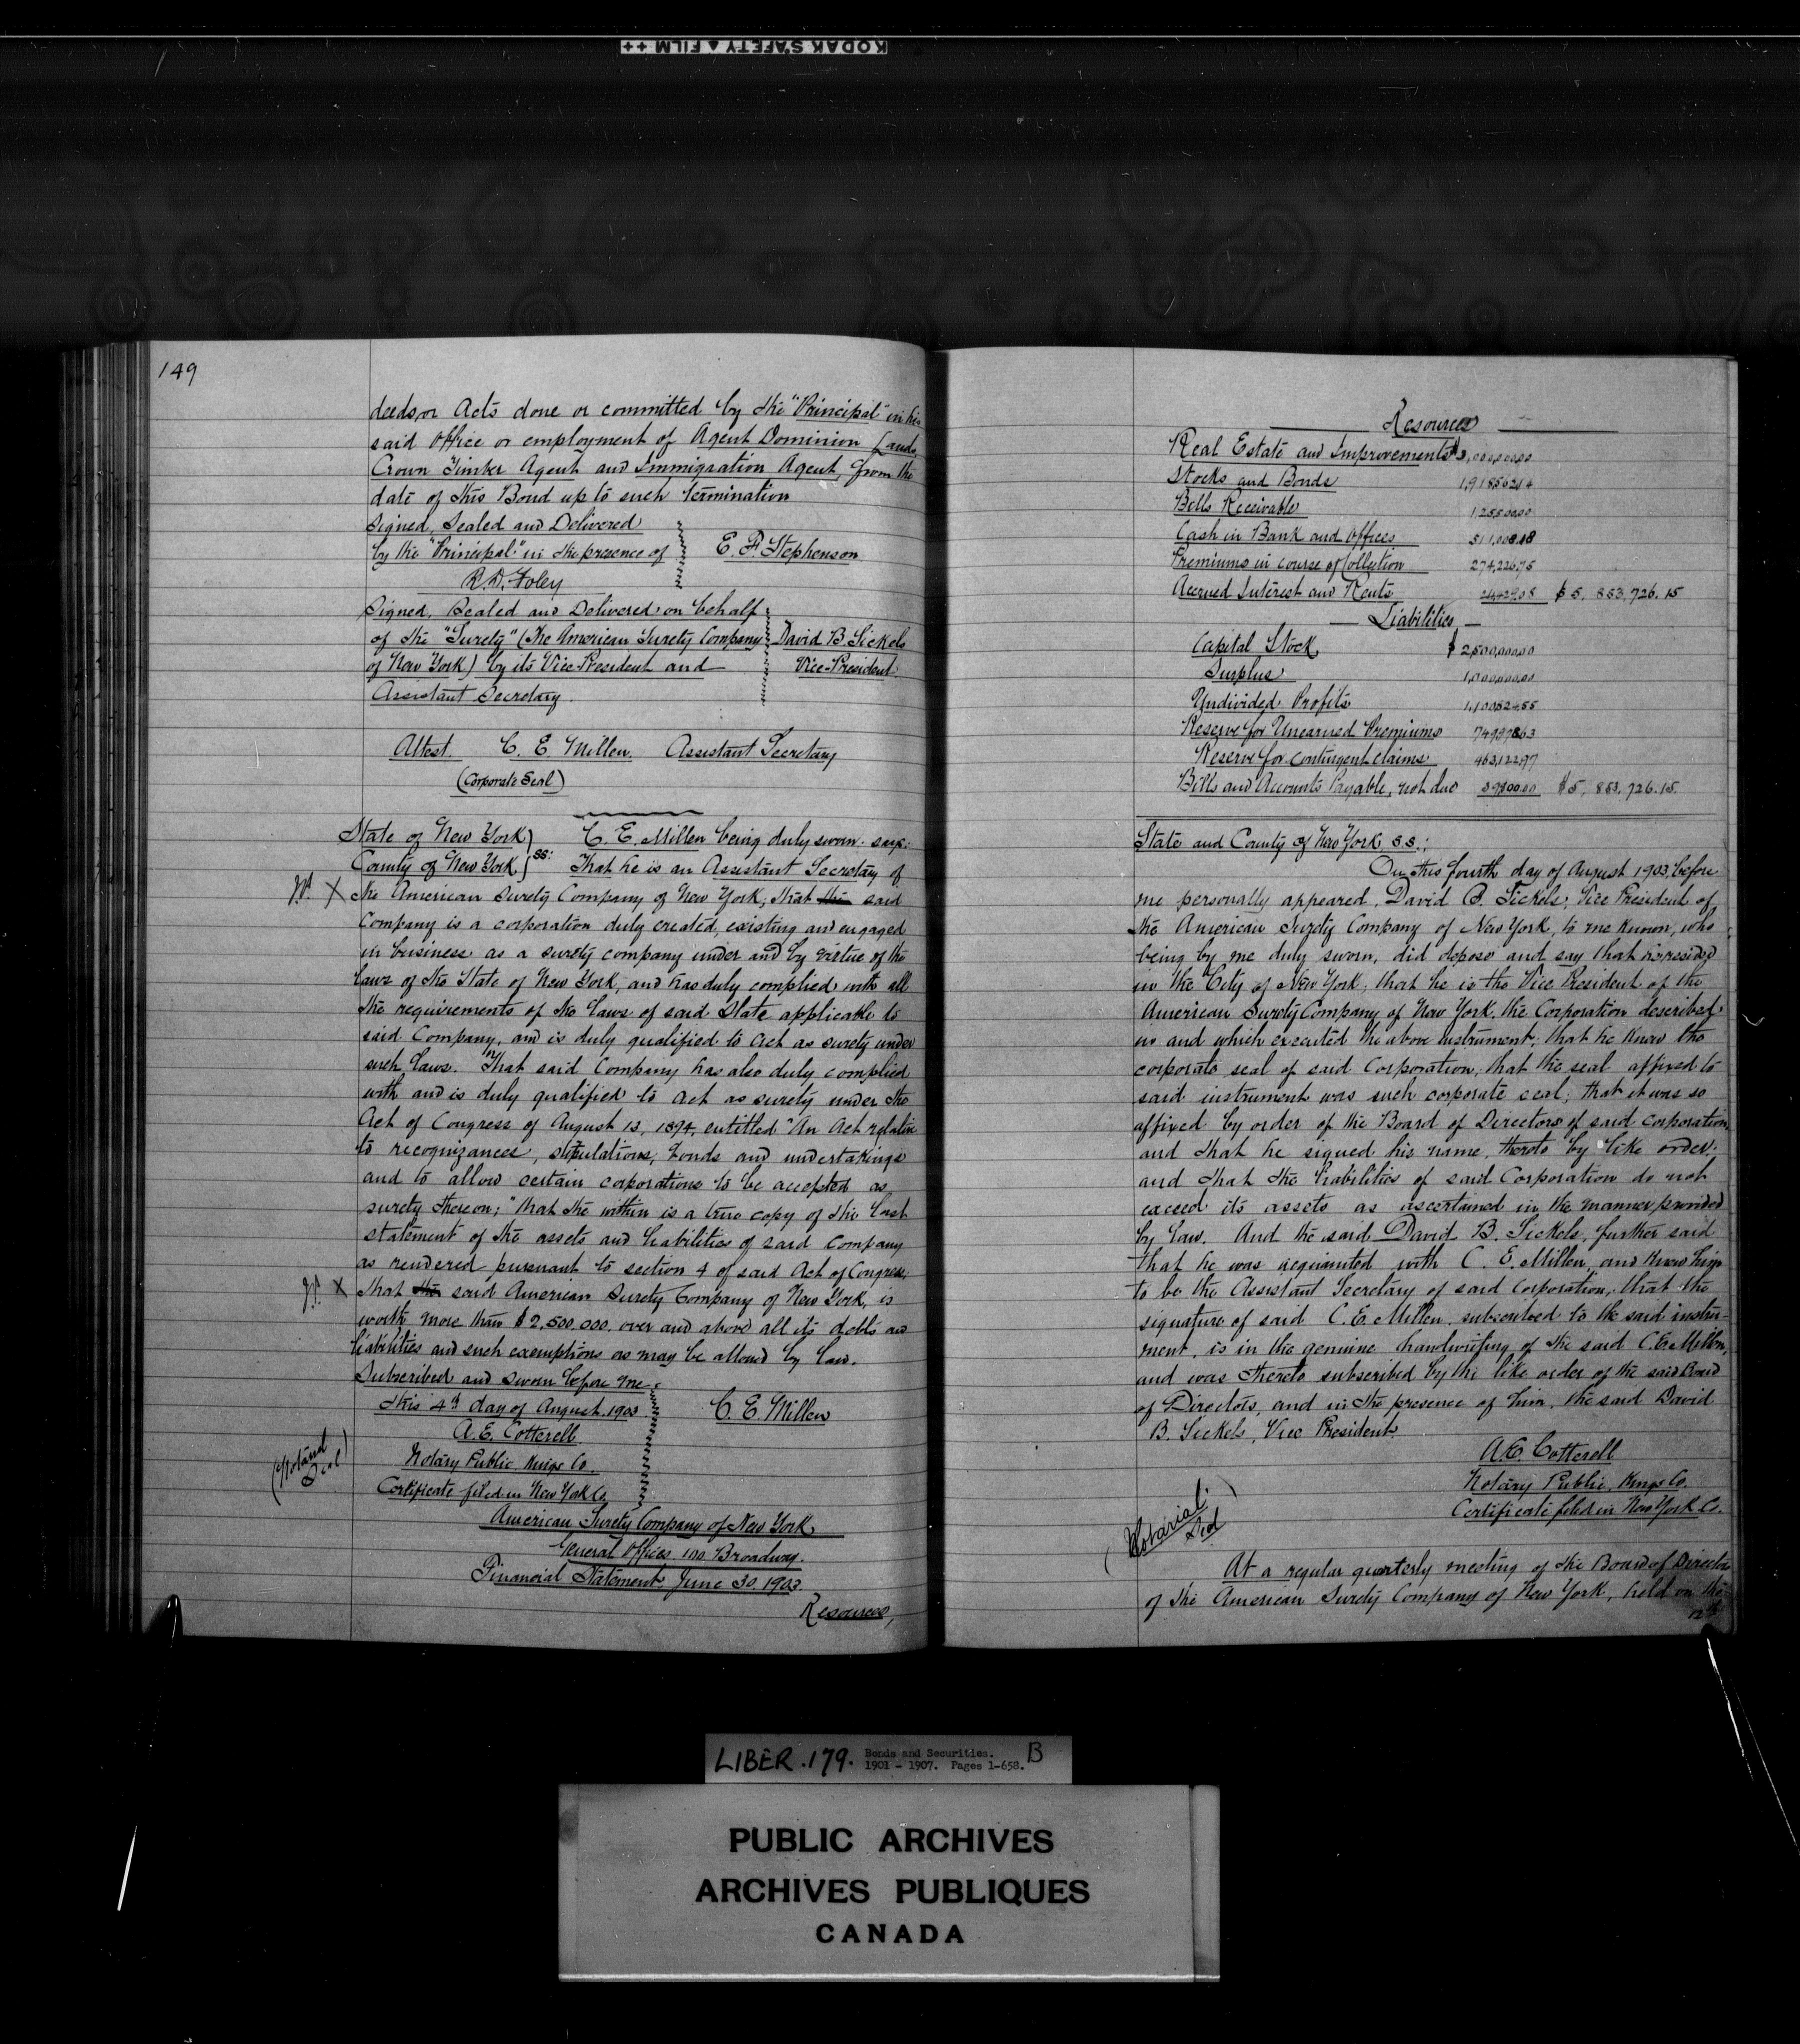 KODAK SAFETY ▲ FILM ++
149
deeds, or Acts done or committed by the "Principal" in his
said office or employment of Agent Dominion Lands,
Crown Timber Agent and Immigration Agent, from the
date of this Bond up to such termination
Signed, Sealed and Delivered
by the "Principal" in the presence of E. F. Stephenson
R.D. Foley
Signed, Sealed and Delivered on behalf
of the "Surety" (The American Surety Company David B. Sickels
of New York) by its Vice-President and Vice-President
Assistant Secretary.
Attest. C. E. Millen. Assistant Secretary
(Corporate Seal)
State of New York) C. E. Millen being duly sworn. says:
County of New York) ss: That he is an Assistant Secretary of
X the American Surety Company of New York; that the said
Company is a corporation duly created, existing and engaged
in business as a surety company under and by virtue of the
laws of the State of New York, and has duly complied with all
the requirements of the laws of said State applicable to
said Company, and is duly qualified to act as surety under
such laws. "That said Company has also duly complied
with and is duly qualified to act as surety under the
Act of Congress of August 13, 1894, entitled "An Act relative
to recognizances, stipulations, bonds and undertakings
and to allow certain corporations to be accepted as
surety thereon;" that the within is a true copy of the last
statement of the assets and liabilities of said company
as rendered pursuant to section 4 of said Act of Congress,
X that the said American Surety Company of New York, is
worth more than $2,500,000. over and above all its debts and
liabilities and such exemptions as may be allowed by law.
Subscribed and sworn before me
this 4th day of August. 1903 C. E. Millen
A. E. Cotterell
Notary Public Kings Co.
(Notarial Seal)
Certificate filed in New York Co.
American Surety Company of New York
General Offices 100 Broadway.
Financial Statement June 30 1903.
Resources,
Resources
Real Estate and Improvements $3,000,000.00
Stocks and Bonds 1,918,562.14
Bills Receivable 125,500.00
Cash in Bank and Offices 511,008.18
Premiums in course of Collection 274,226.75
Accrued Interest and Rents 24,429.08 $5,853,726.15
Liabilities
Capital Stock $2,500,000.00
Surplus 1,000,000.00
Undivided Profits 1,100,624.55
Reserve for Unearned Premiums 749,978.63
Reserve for contingent claims 463,122.97
Bills and Accounts Payable, not due 39,800.00 $5,853,726.15.
State and County of New York, S.S.:
On this fourth day of August 1903, before
me personally appeared, David B. Sickels, Vice President of
the American Surety Company of New York, to me known, who
being by me duly sworn, did depose and say that he resided
in the City of New York; that he is the Vice President of the
American Surety Company of New York, the Corporation described
in and which executed the above instrument; that he knew the
corporate seal of said Corporation; that the seal affixed to
said instrument was such corporate seal; that it was so
affixed by order of the Board of Directors of said corporation,
and that he signed his name, thereto by like order;
and that the liabilities of said Corporation do not
exceed its assets as ascertained in the manner provided
by law. And the said David B. Sickels, further said
that he was acquainted with C. E. Millen, and knew him
to be the Assistant Secretary of said Corporation, that the
signature of said C. E. Millen. subscribed to the said instru-
ment, is in the genuine handwriting of the said C. E. Millen,
and was thereto subscribed by the like order of the said Board
of Directors, and in the presence of him, the said David
B. Sickels, Vice President.
A. E. Cotterell
Notary Public, Kings Co.
Certificate filed in New York Co.
(Notarial Seal)
At a regular quarterly meeting of the Board of Directors
of the American Surety Company of New York, held on the
12th
LIBER.179. Bonds and Securities. B
1901 - 1907. Pages 1-658.
PUBLIC ARCHIVES
ARCHIVES PUBLIQUES
CANADA